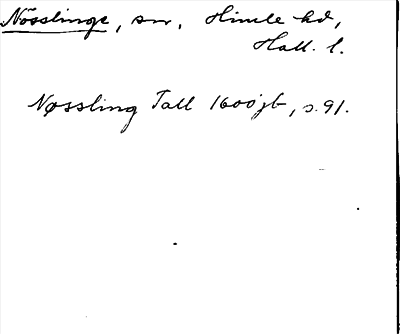 Nösslinge, sn, Himle hd,
Hall. l.
Nøssling Tall 1600jb, s. 91.